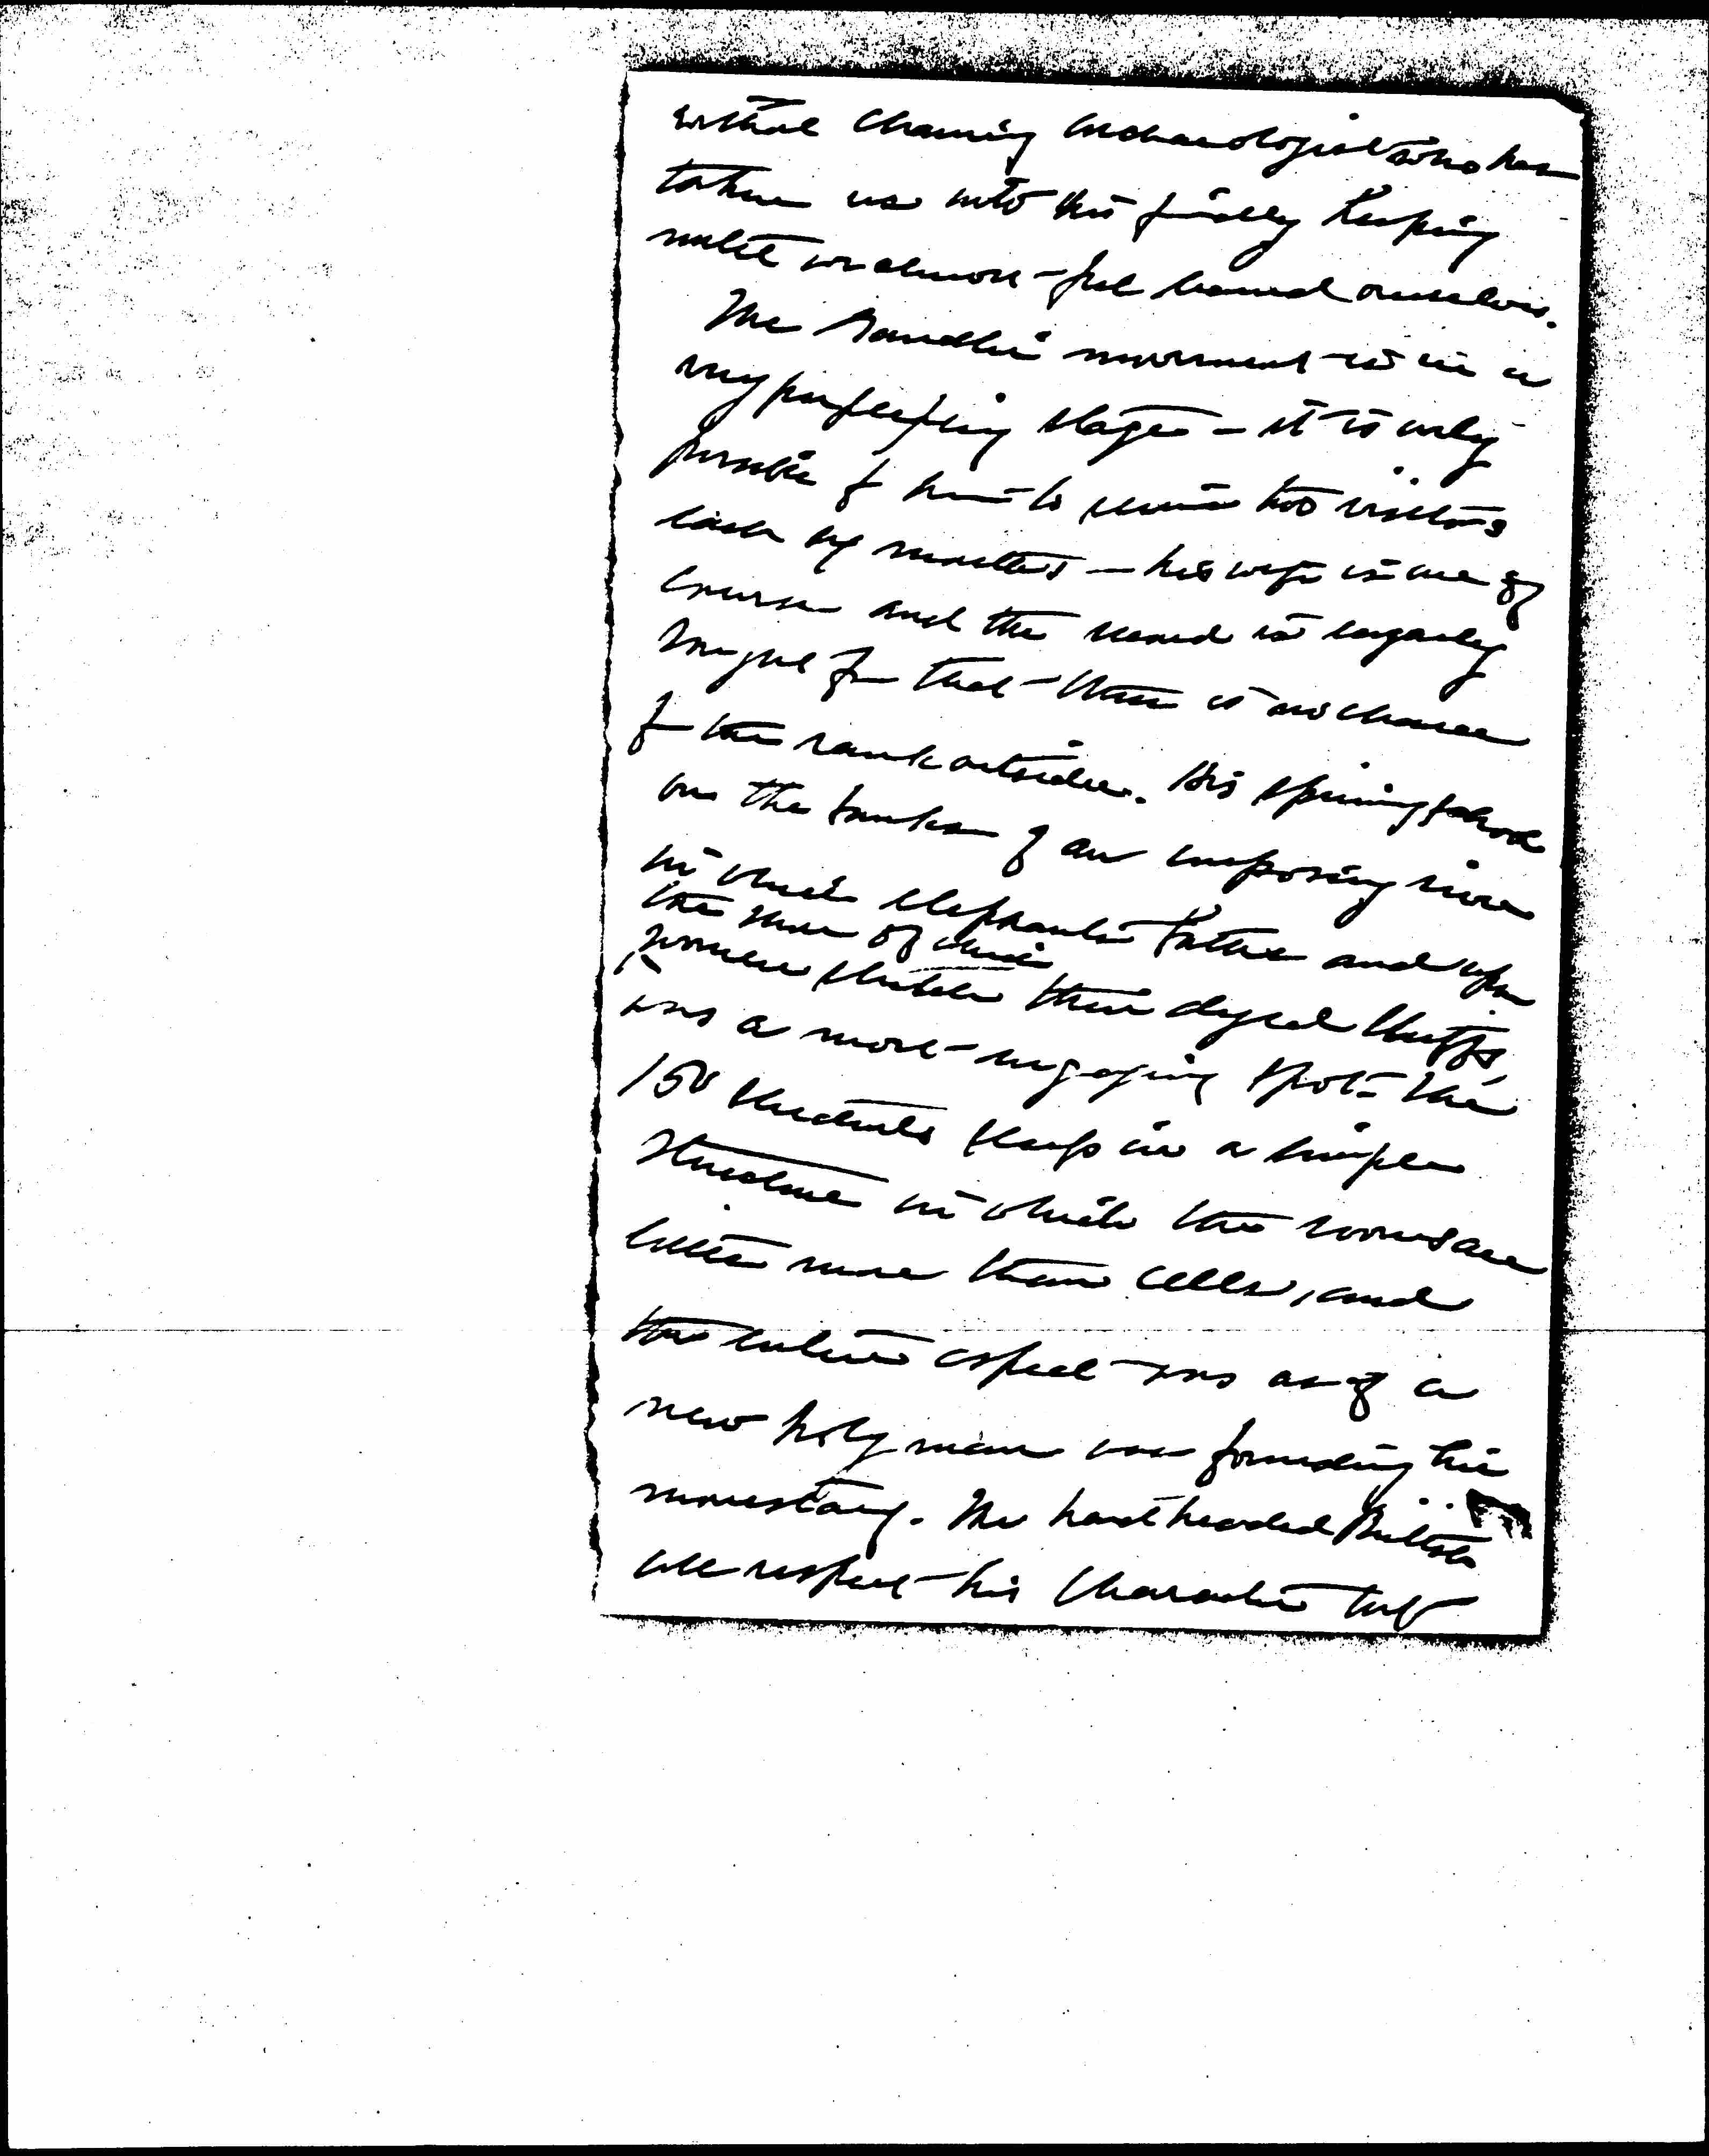 withal charming archaeologist who has
taken us into his friendly keeping
until we almost feel learned ourselves.
The Gandhi movement is in a
very perplexing stage - it is only
possible for him to receive two visitors
each by months - his wife is one of
course and the second is eagerly
sought for that there is no chance
for the rank outsider. His spinning school
on the banks of an imposing river
in which elephants bathe and upon
the shore of which
women stretch their dyed stuffs,
was a most engaging spot - the
150 students sleep in a simple
structure in which the rooms are
little more than cells, and
the entire aspect was as if a
new holy man was founding his
monastary. The hard headed British
all respect his character but